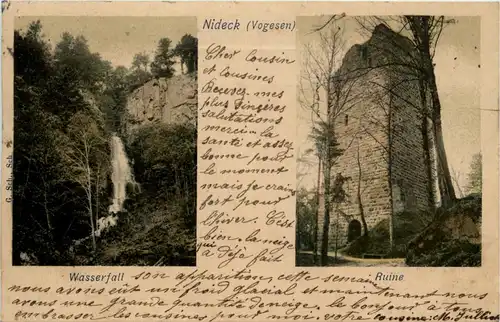 Nideck (Vogesen)
Cher Cousin
et cousines
Recevez mes
plus sincères
salutations
merci la
santé et assez
bonne pour
le moment
mais je crains
fort pour
l'hiver. C'est
bien la neige
qui a déjà fait
G. Sch. Sch.
Wasserfall
Ruine
son apparition cette semaine.
nous avons eut un froid glacial et maintenant nous
avons une grande quantité de neige. le bonjour à tous
embrasser les cousines pour moi, votre cousine: M.